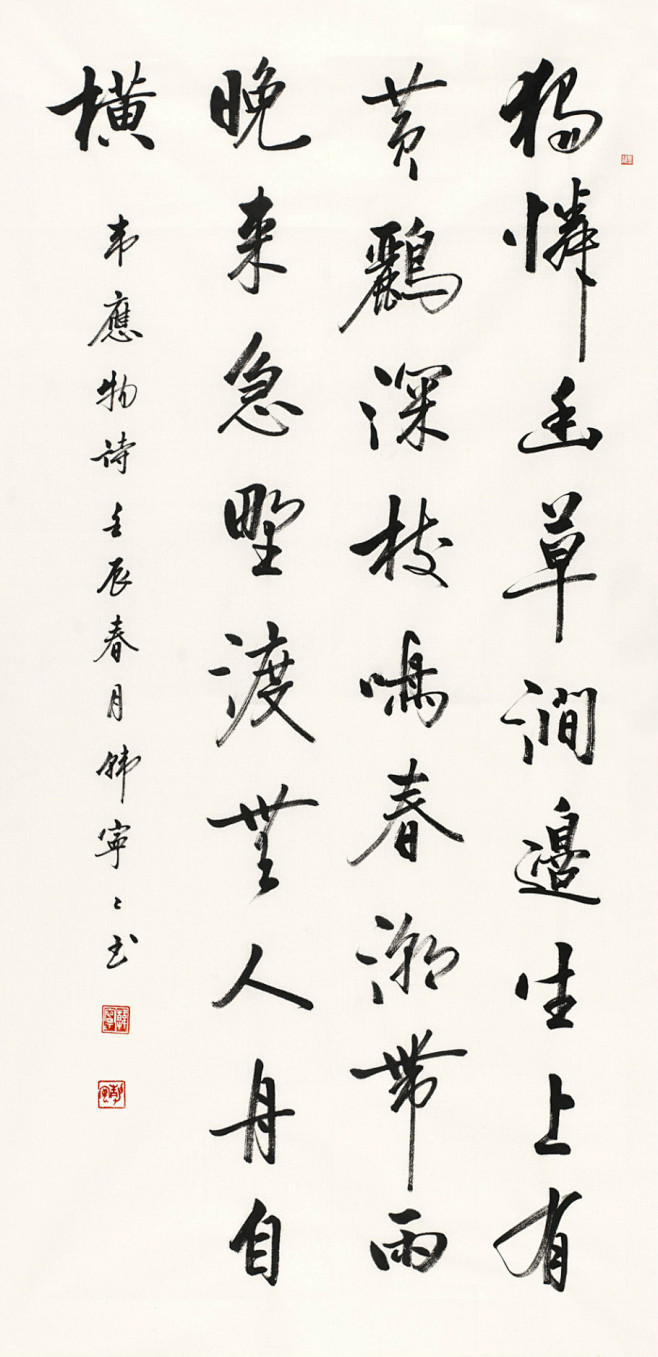 獨憐幽草澗邊生上有
黄鸝深枝鳴春潮帶雨
晚来急野渡無人舟自
橫
韦應物詩壬辰春月韩寧〻书